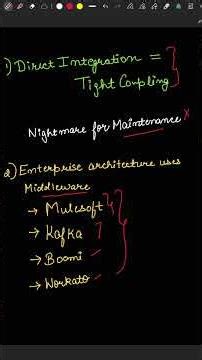 1) Direct Integration =
Tight Coupling
Nightmare for Maintenance x
2) Enterprise architecture uses
Middleware
→ Mulesoft
→ Kafka
→ Boomi
→ Workato